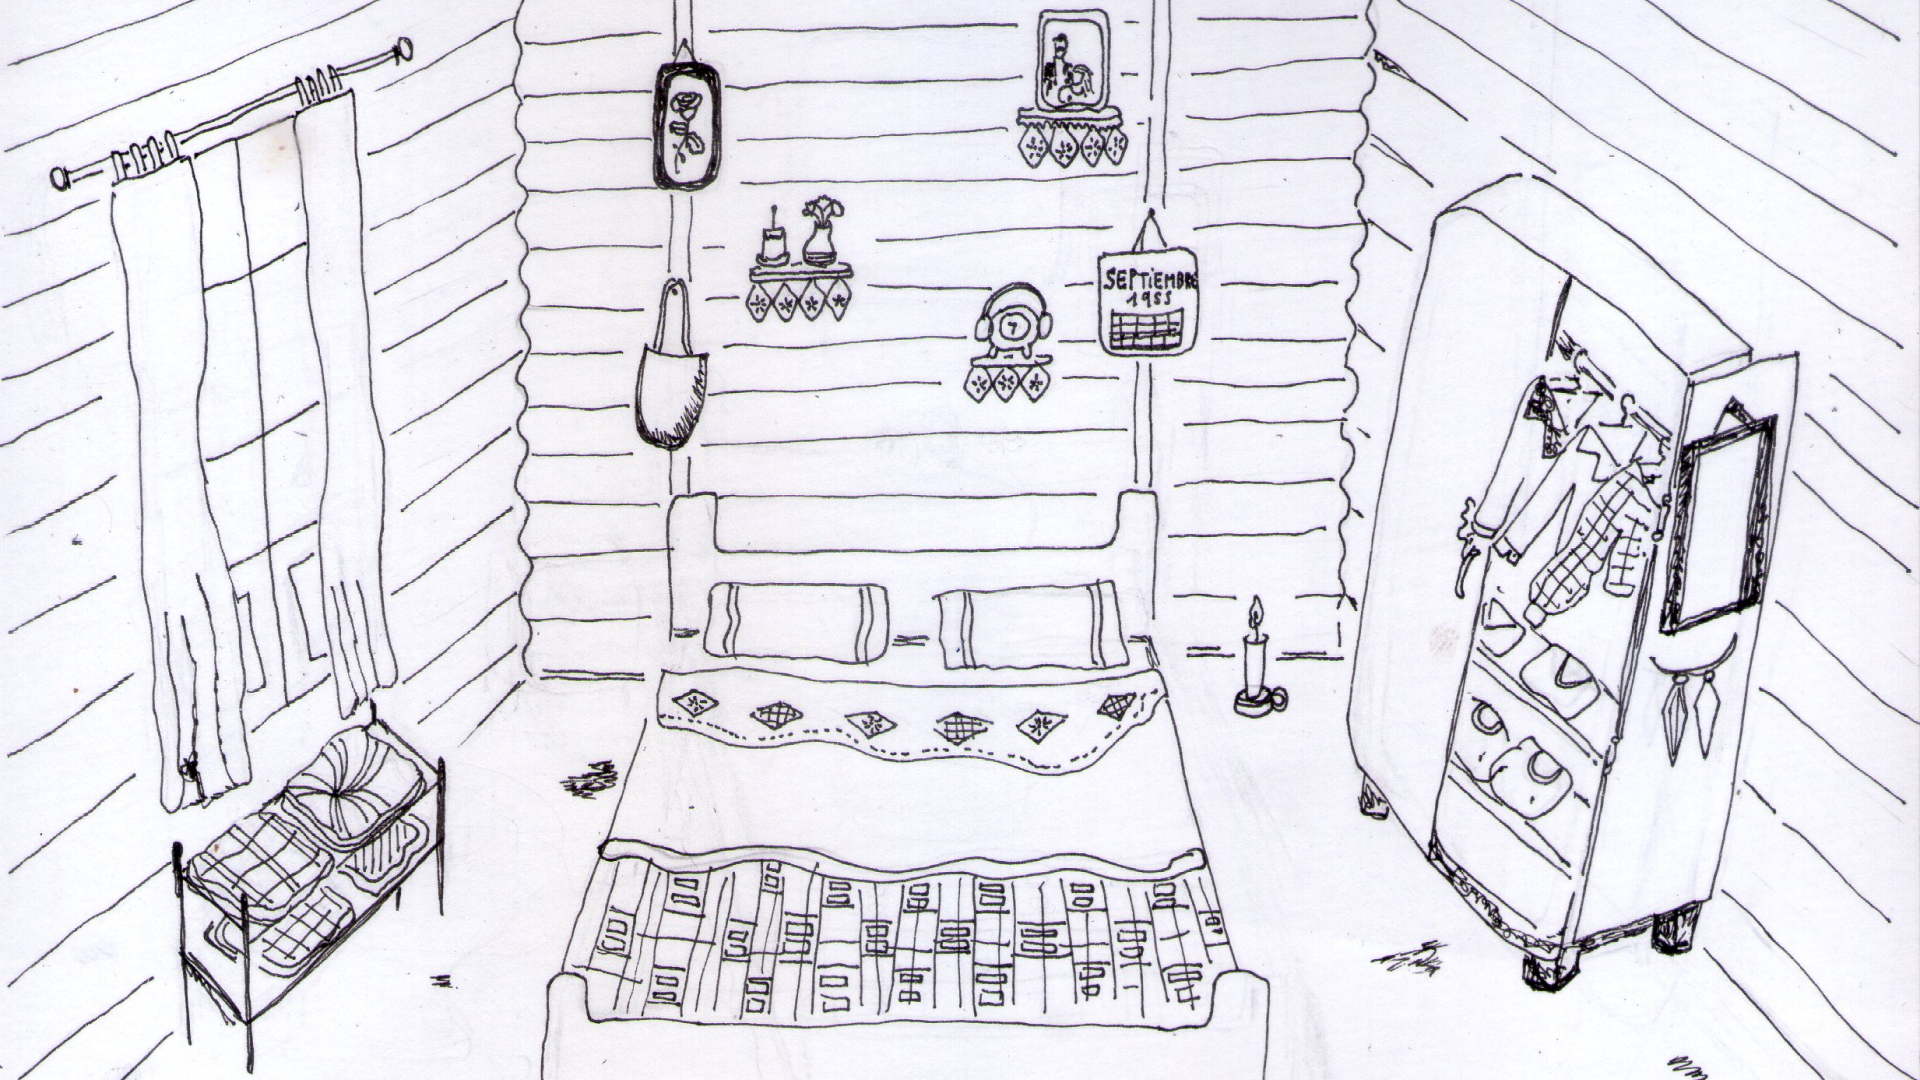 SEPTIEMBRE
1955
7